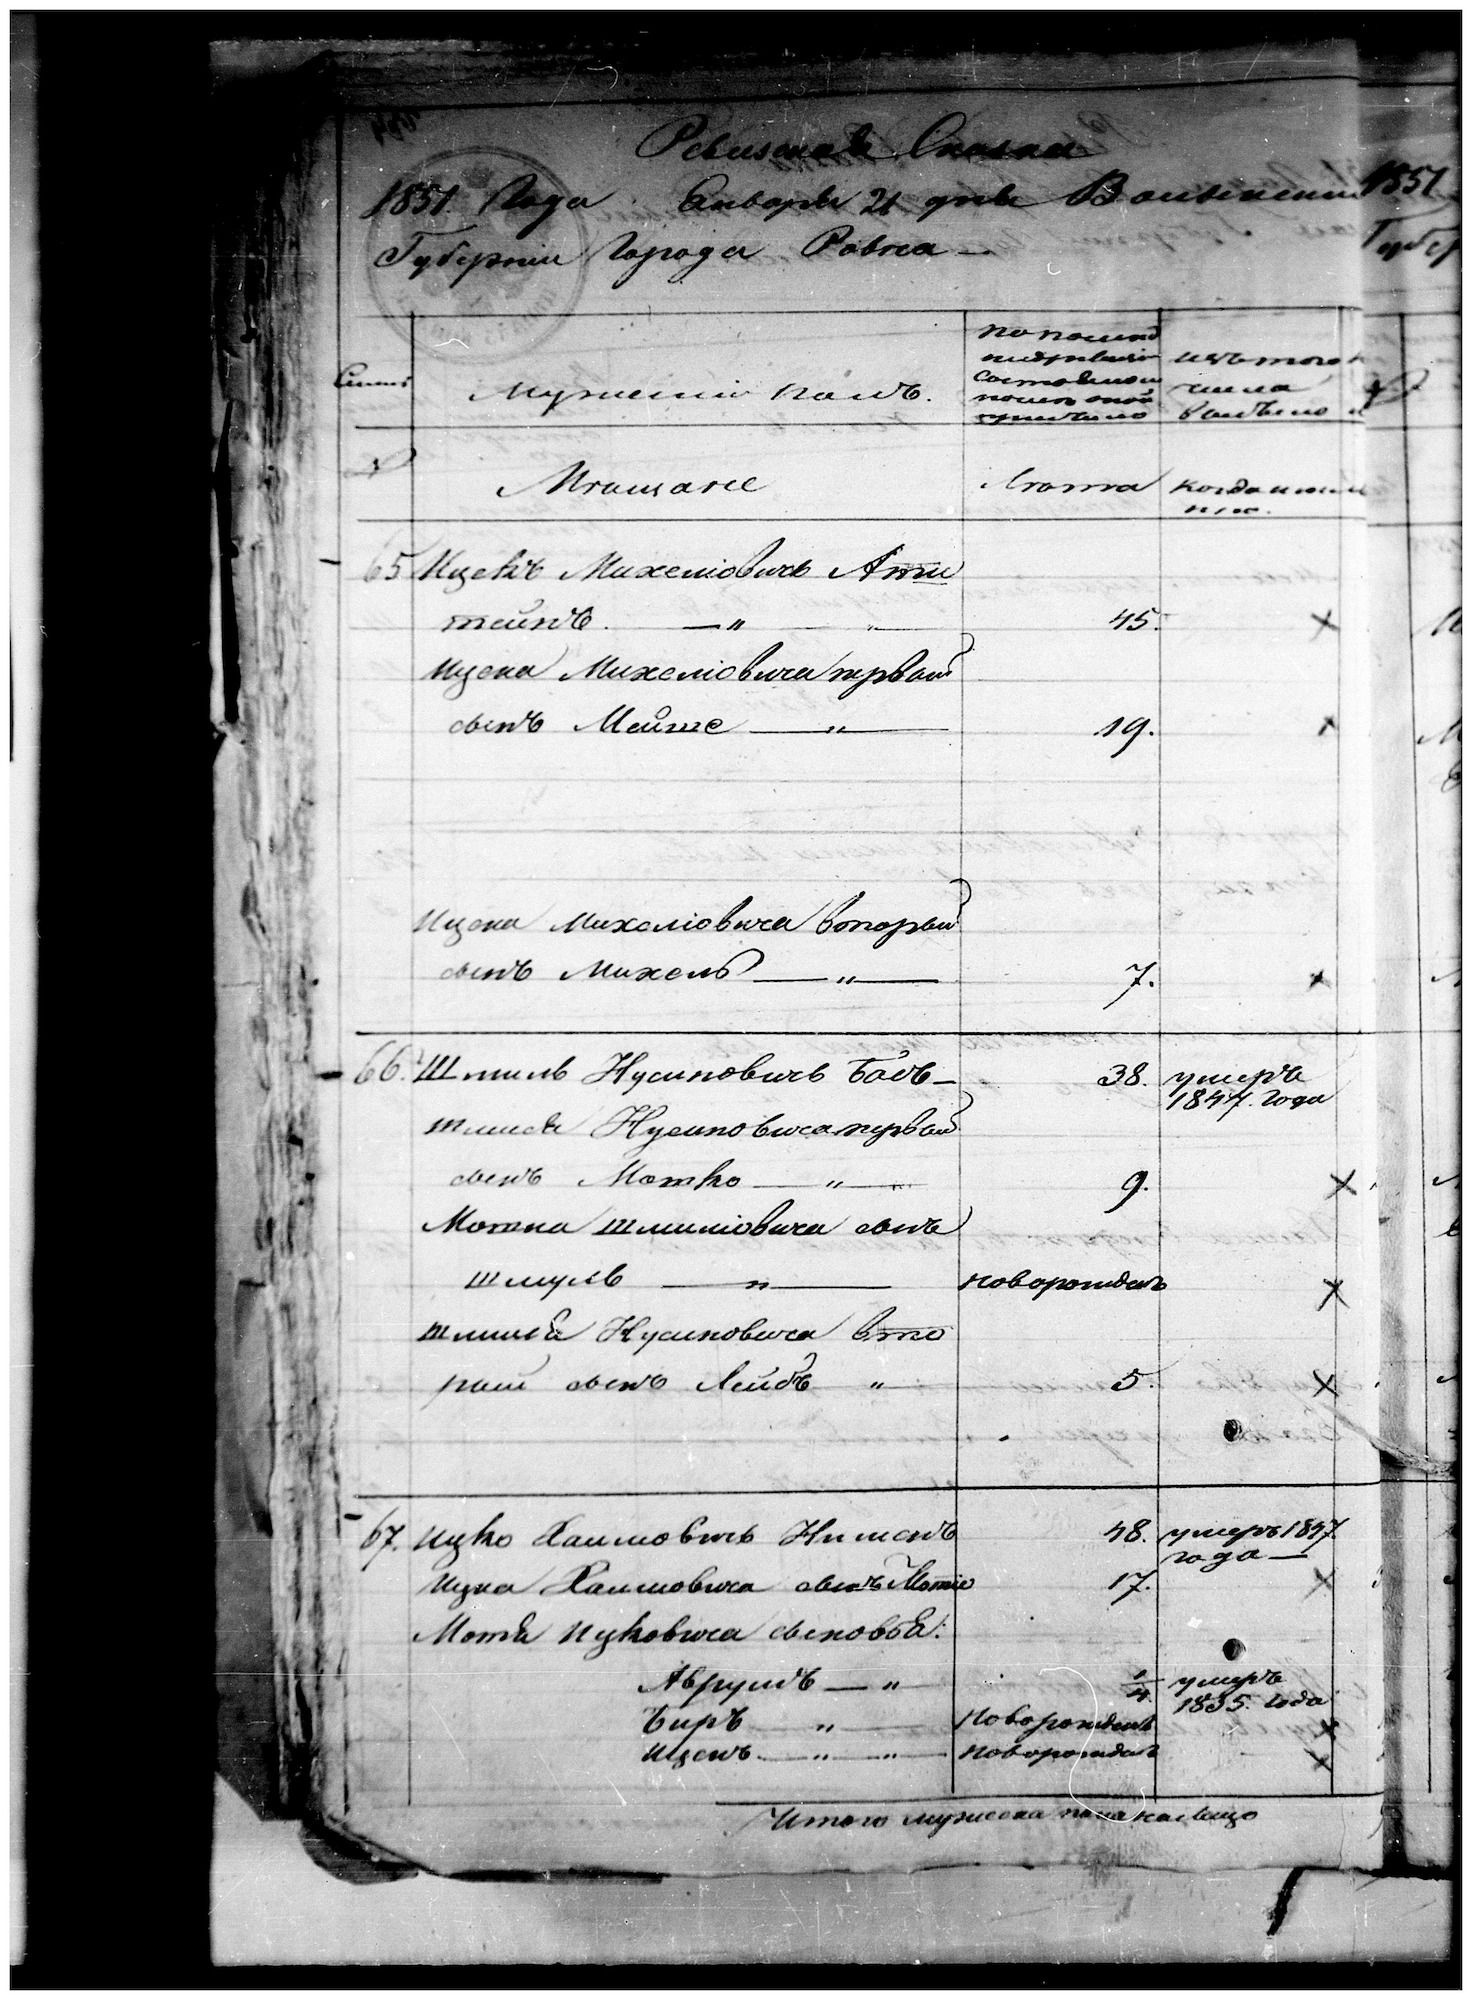 Ревизская Сказка
1851. Года Января 21 дня Волынской
Губернии Города Ровна —
1851
Губер
Семьи
Мужеский полъ.
По последней
изъ того
числа
выбыло
№
Мещане
Лета
когда именно
65 Ицекъ Михелiовичъ Апш
тейнъ. — " — " 45. ×
Ицека Михелiовича первый
сынъ Мейше — " — 19. ×
Ицека Михелiовича вторый
сынъ Михель — " — 7. ×
66. Шмиль Нусиновичъ 38. умеръ
1847. Года
Шмиля Нусиновича первый
сынъ Мотко — " — 9. ×
Мотка Шмилiовича сынъ
Шмуль — " — новорожденъ ×
Шмиля Нусиновича вто
рый сынъ Лейбъ " 5. ×
67. Ицко Хаимовичъ 48. умеръ 1847.
года —
Ицка Хаимовича сынъ Мотiе 17. ×
Мотя Ицковича сыновья:
Аврумъ — " 1/4. умеръ
1835. Года
Беръ — " — Новорожденъ ×
Ицекъ — " — " — новорожденъ ×
Итого мужеска пола налицо